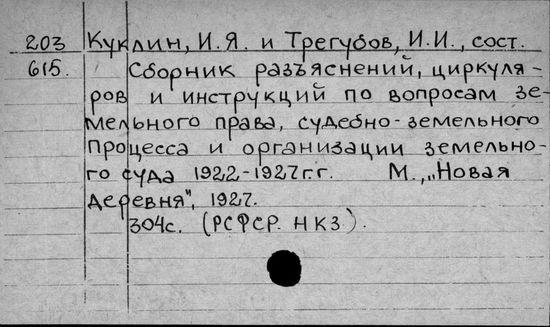 203 Куклин, И.Я. и Трегубов, И.И., сост.
615. Сборник разъяснений, циркуля-
ров и инструкций по вопросам зе-
мельного права, судебно-земельного
процесса и организации земельно-
го суда 1922-1927г.г. М., „Новая
деревня", 1927.
304с. (РСФСР. НКЗ).